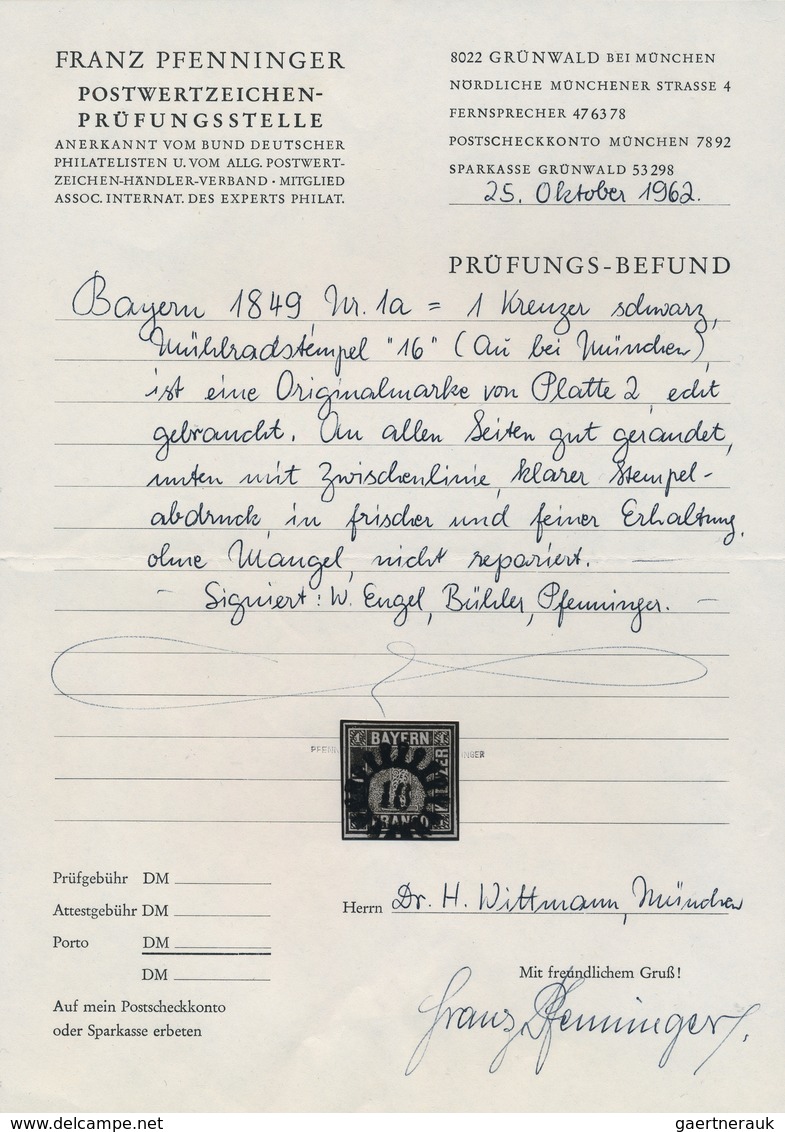 FRANZ PFENNINGER
POSTWERTZEICHEN-
PRÜFUNGSSTELLE
ANERKANNT VOM BUND DEUTSCHER
PHILATELISTEN U. VOM ALLG. POSTWERT-
ZEICHEN-HÄNDLER-VERBAND · MITGLIED
ASSOC. INTERNAT. DES EXPERTS PHILAT.
8022 GRÜNWALD BEI MÜNCHEN
NÖRDLICHE MÜNCHENER STRASSE 4
FERNSPRECHER 476378
POSTSCHECKKONTO MÜNCHEN 7892
SPARKASSE GRÜNWALD 53298
25. Oktober 1962.
PRÜFUNGS-BEFUND
Bayern 1849 Nr. 1a = 1 Kreuzer schwarz,
Mühlradstempel "16" (Au bei München),
ist eine Originalmarke von Platte 2, echt
gebraucht. An allen Seiten gut gerandet,
unten mit Zwischenlinie, klarer Stempel-
abdruck, in frischer und feiner Erhaltung,
ohne Mängel, nicht repariert. —
- Signiert: W. Engel, Bühler, Pfenninger. -
BAYERN
PFENN
INGER
16
FRANCO
Prüfgebühr DM
Attestgebühr DM
Porto DM
DM
Auf mein Postscheckkonto
oder Sparkasse erbeten
Herrn Dr. H. Wittmann, München
Mit freundlichem Gruß!
Franz Pfenninger.
delcampe.net
gaertnerauk